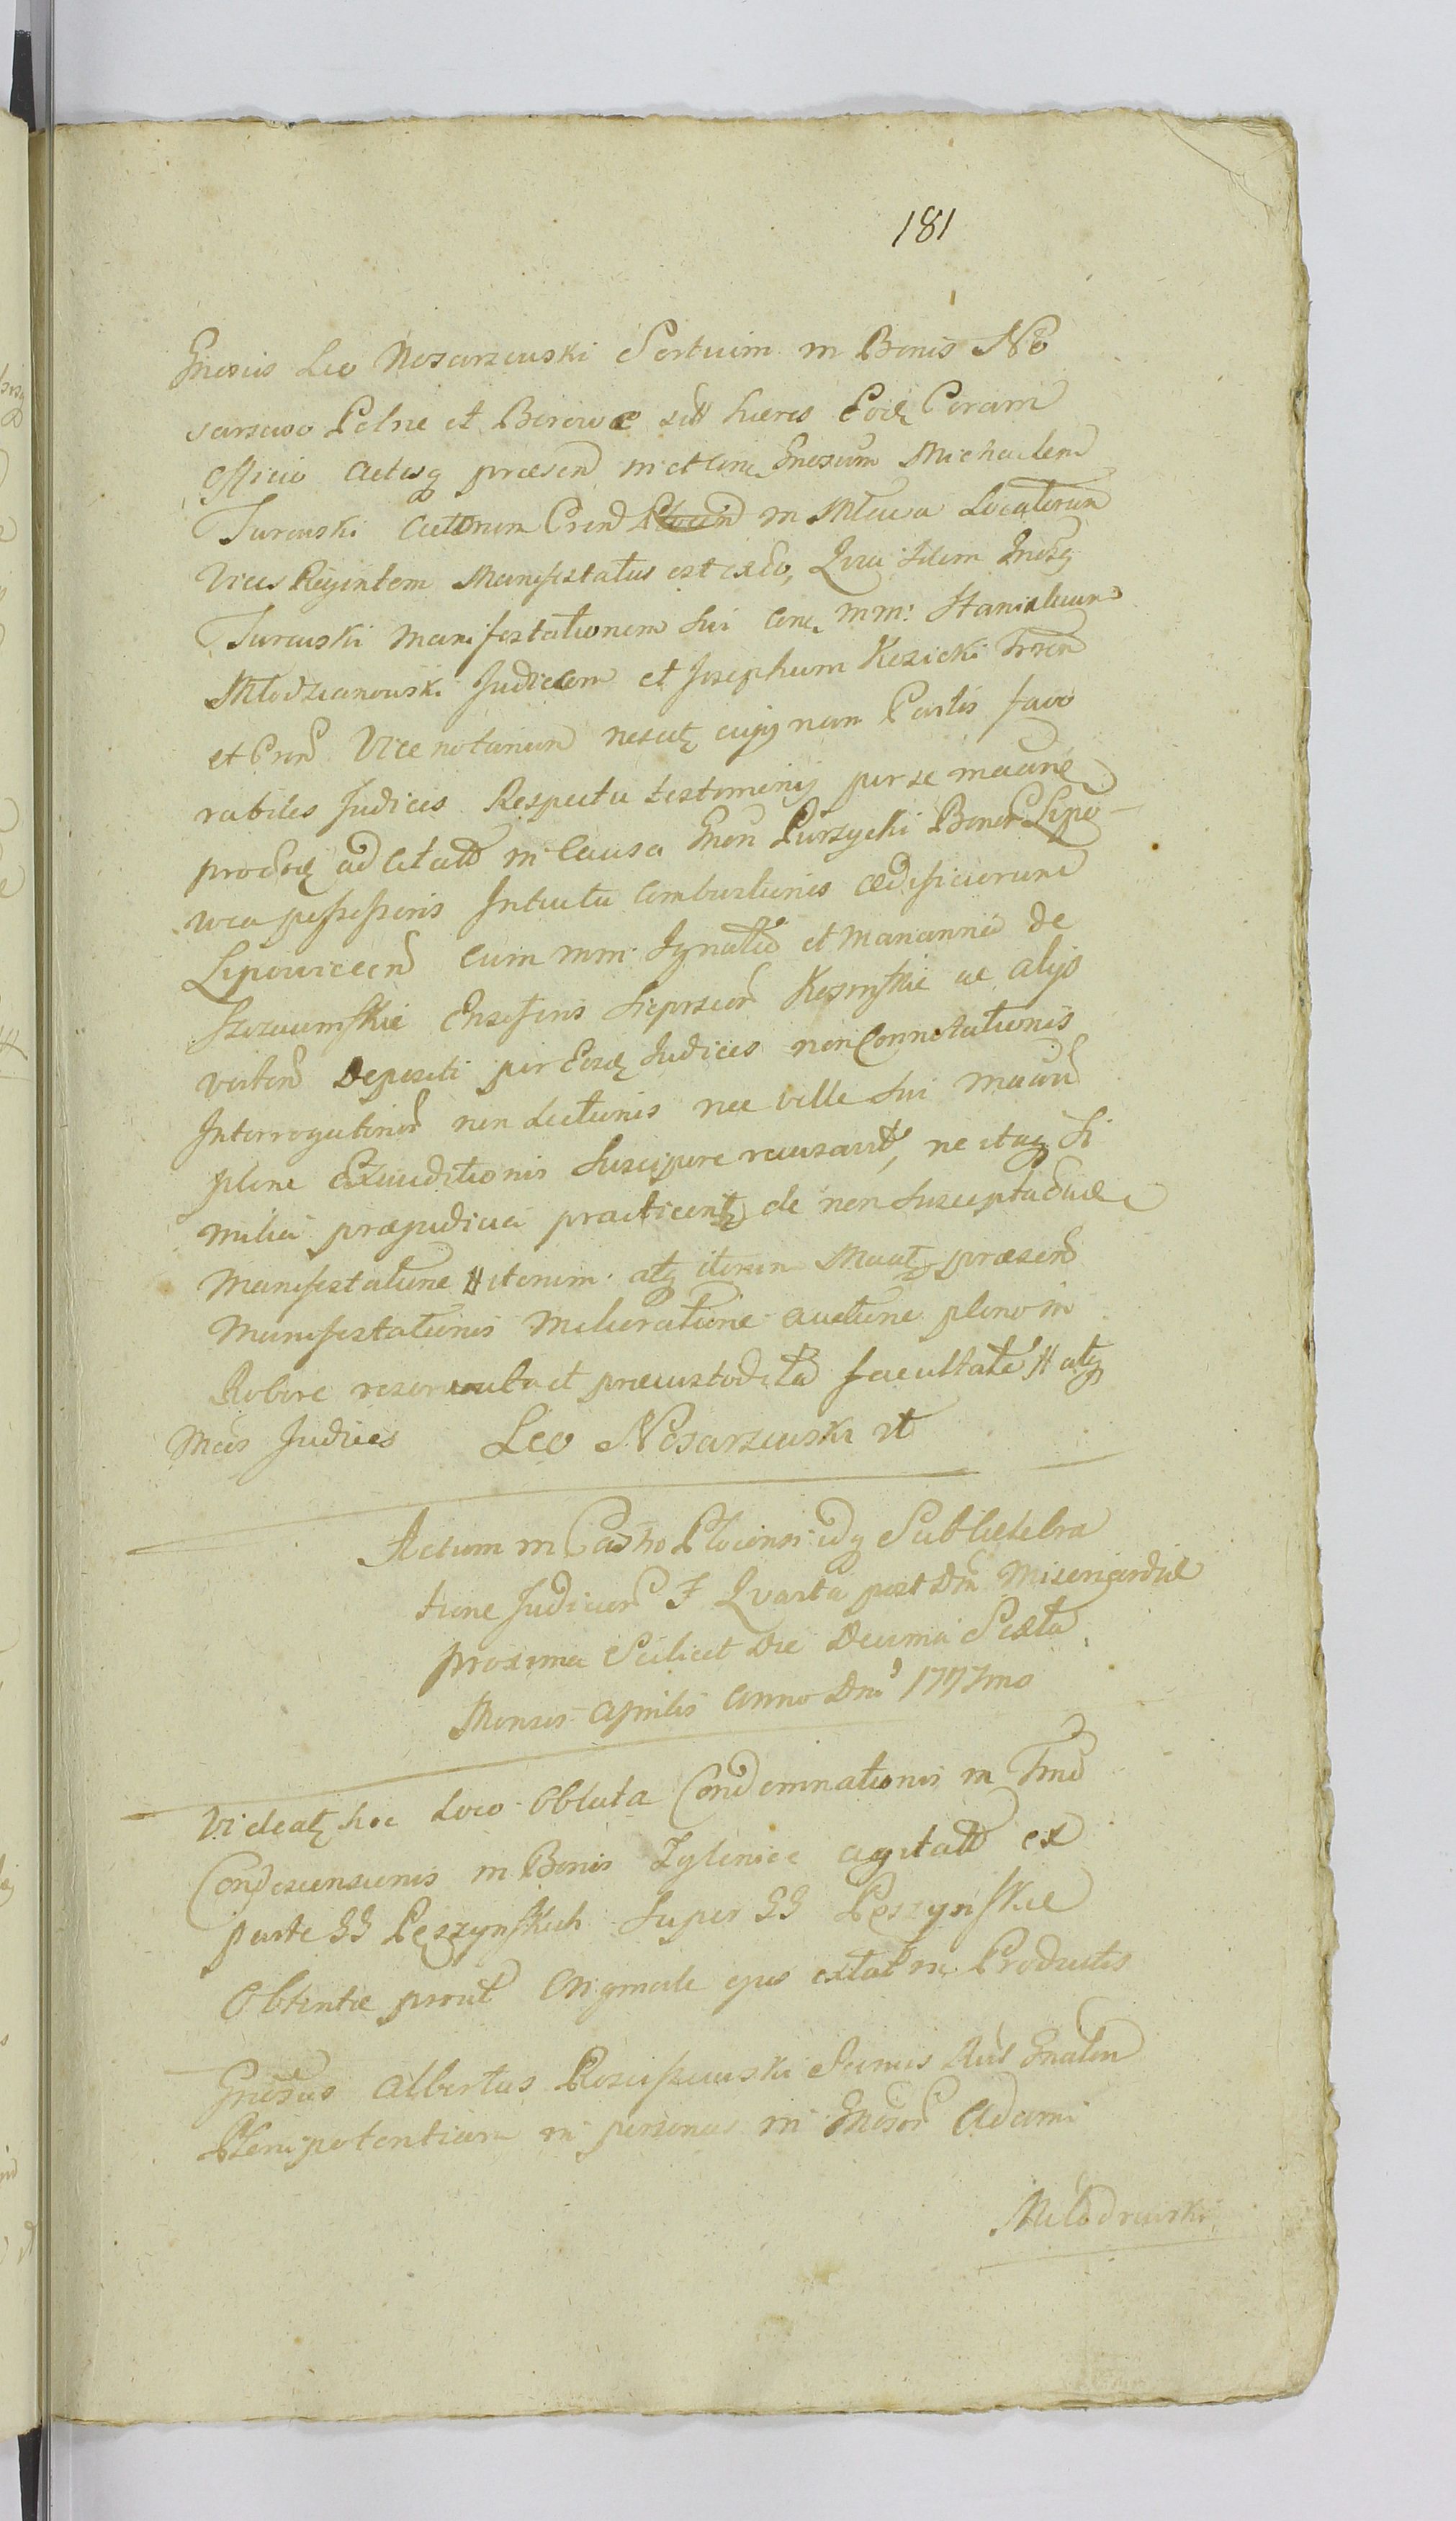 181
Gnosus Leo Nosarzewski Sortium in Bonis No
sarzewo Polne et Borowe  hæres Eoq Coram
Officio Actisq præsen in et cone Gnosum Michaelem
Turowski Actorum Cren Plocen in Mława Locatorum
Vices Regentem Manifestatus est eædo, Quia Idem Gnosq
Turowski Manifestationem Sui Cone mm: Stanislaum
Młodzianowski Judicem et Josephum Kozicki
et Cren Vice notarium nescitq cujq nam Partis favo
rabiles Judices Respectu testimonij per se
 ad Citatt in Causa Gnon Purzycki Bonor Lipo
wca possessoris Intuitu Combustionis ædificiorum
Lipowiecen cum mm: Ignatio et Marianna de
 Kosinskie ac alijs
 Depositi per Eosq Judices non Connotationis
 non Lectionis nec velle Sui
plene Exauditionis Suscipere recusavit, ne itaq Si
milia præjudicia practicentq de non Suscepta
Manifestatione iterum atq iterum præsen
Manifestationis Melioratione auctione pleno in
Robore reservata et præcustodita facultate # atq
 Judices Leo Nosarzewski
Actum in Castro Plocensi idq Sub Celebra
tione Judicior F Quarta post Dm Misericordiæ
proxima Scilicet Die Decima Sexta
Mensis Aprilis Anno Dni 1777mo
Videatq hoc Loco Oblata Condemnationis in Tmo
Condescensionis in Bonis Zglenice agitatt ex
parte GG Pęszynskich Super GG Pęszynskie
Obtentæ prout Originale ejus extat in Productis
Gnosus Albertus Rosciszewski
Plenipotentiam in personas Gnosor Adami
Młodzewski